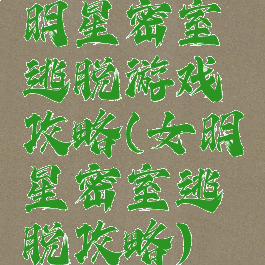 明星密室
逃脱游戏
攻略(女明
星密室逃
脱攻略)